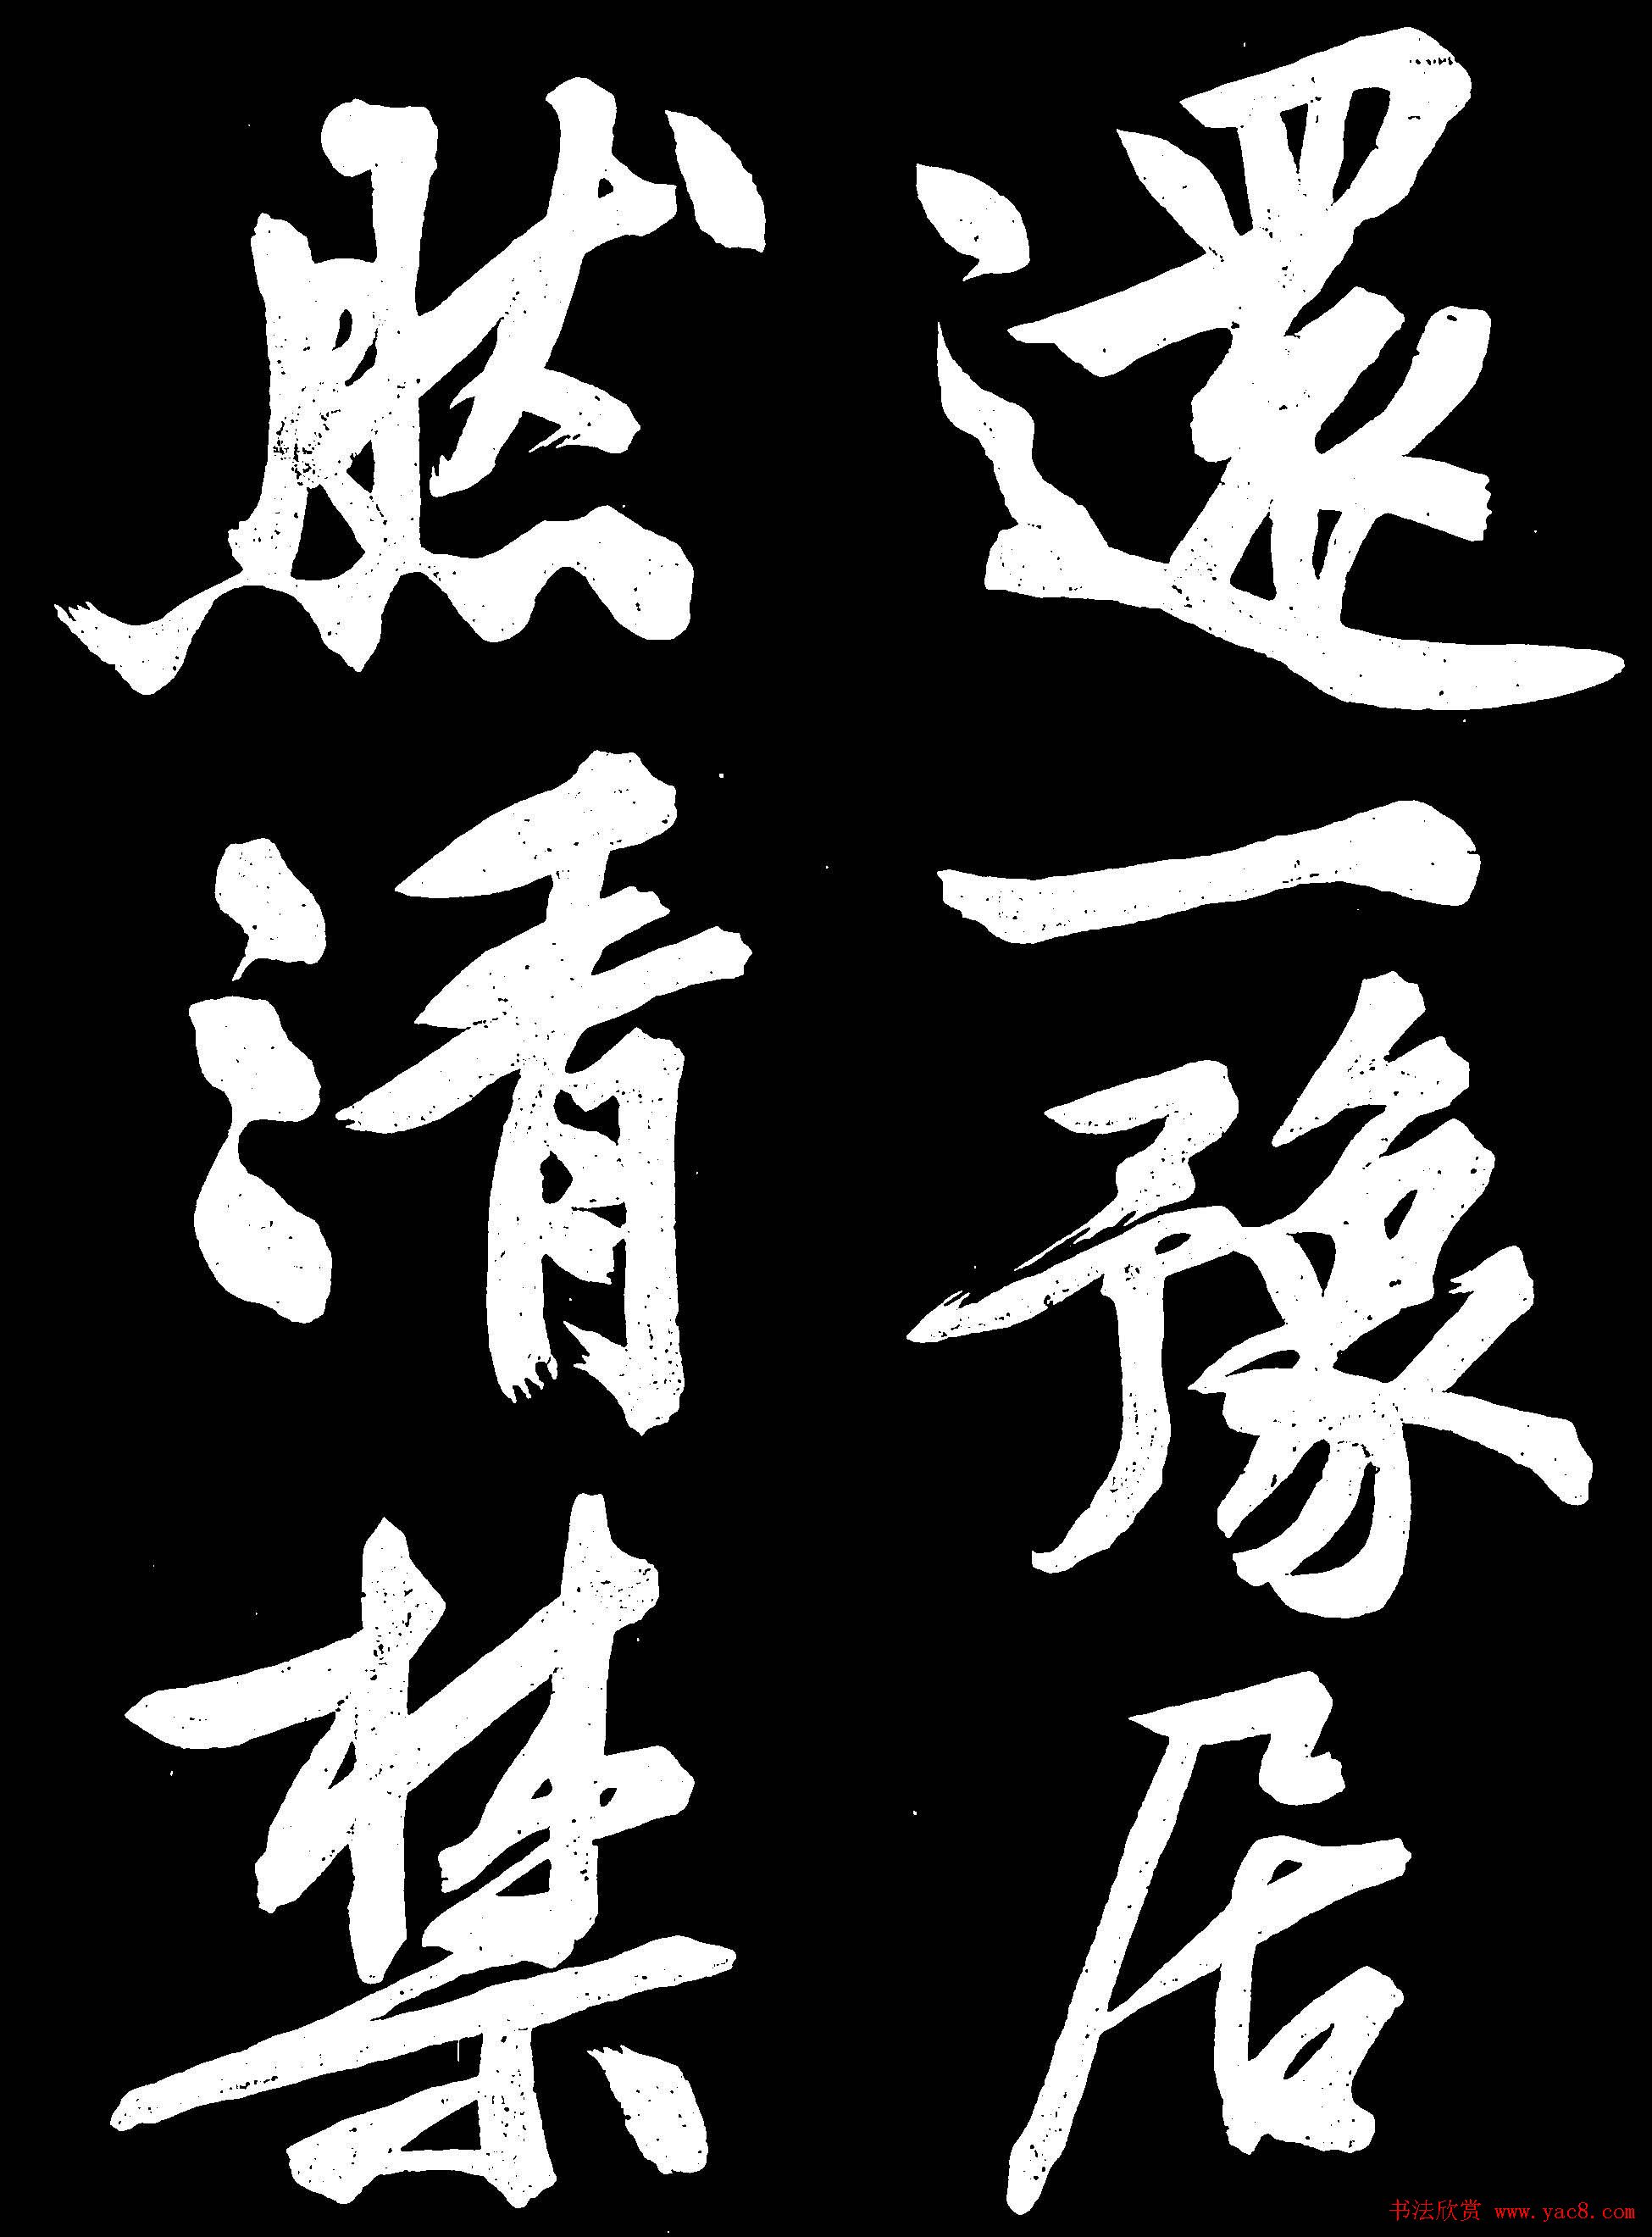 還一豫居
然清禁
书法欣赏 www.yac8.com